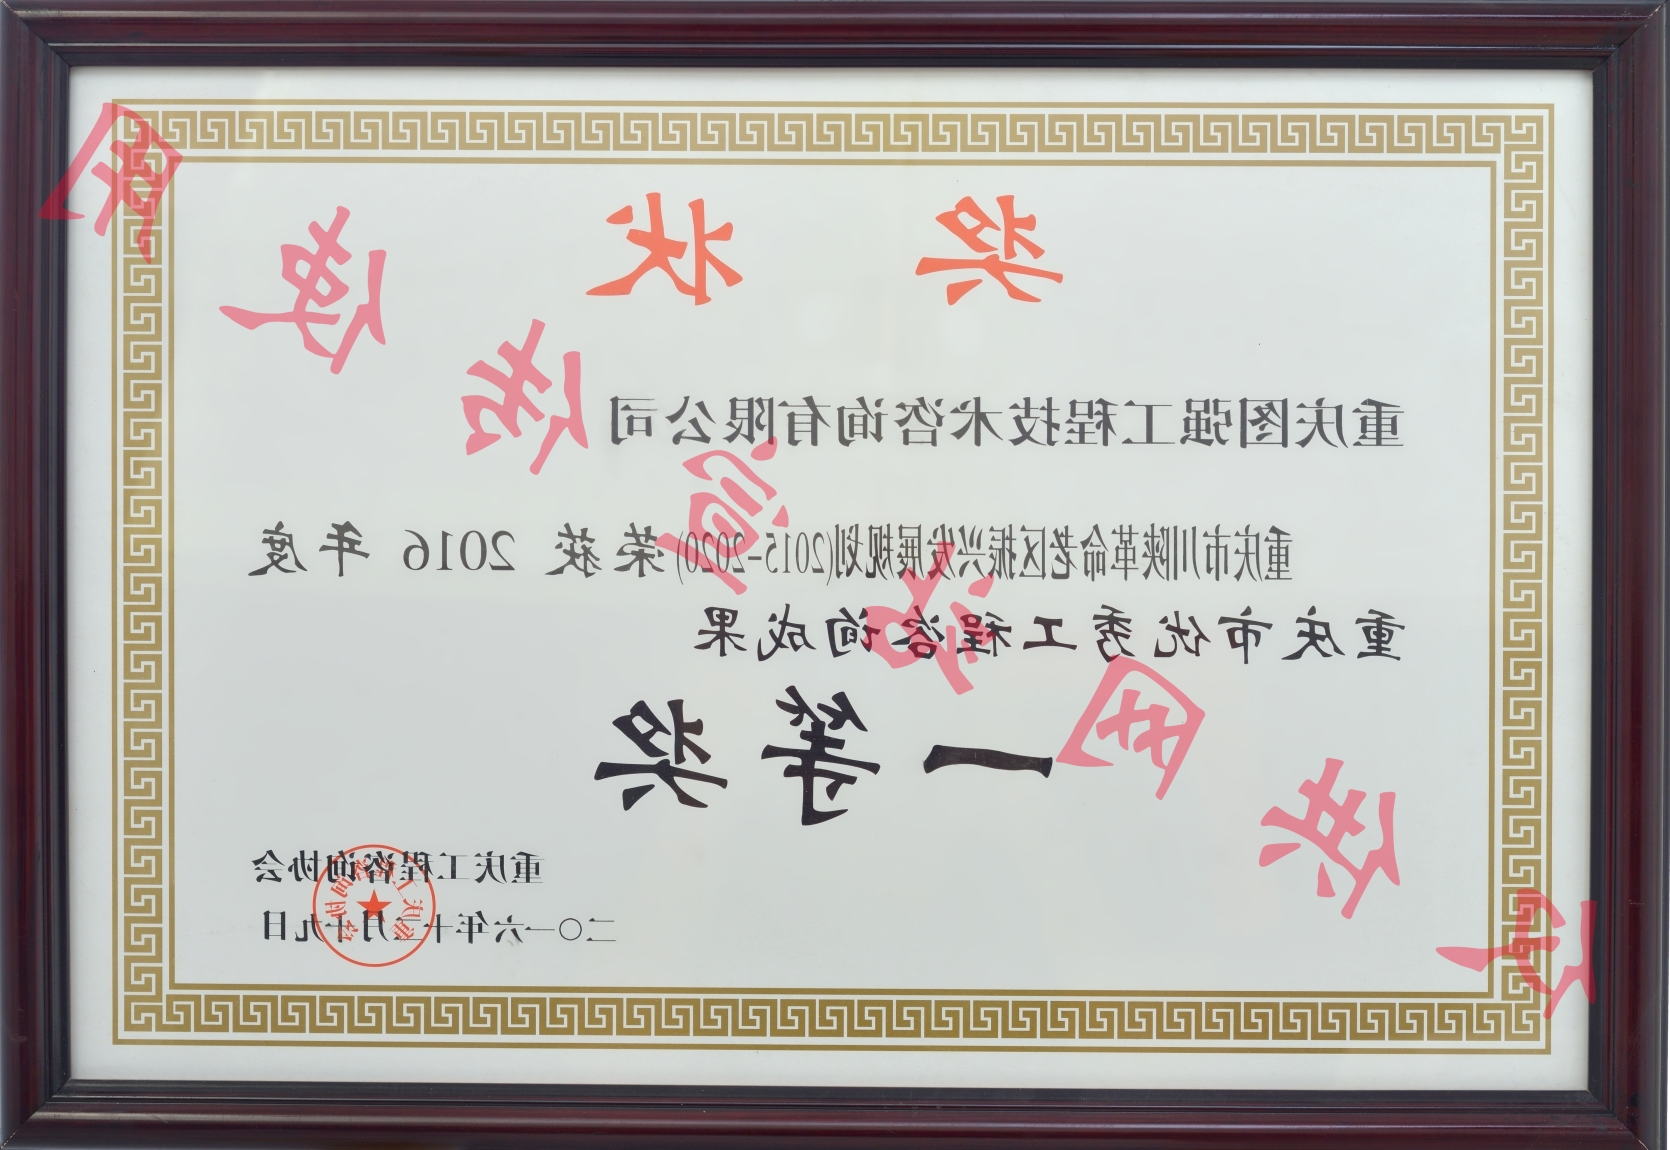 奖状
重庆图强工程技术咨询有限公司
重庆市川陕革命老区振兴发展规划(2015-2020)荣获 2016 年度
重庆市优秀工程咨询成果
一等奖
重庆工程咨询协会
二〇一六年十二月十九日
重庆工程咨询协会
仅供网站宣传使用